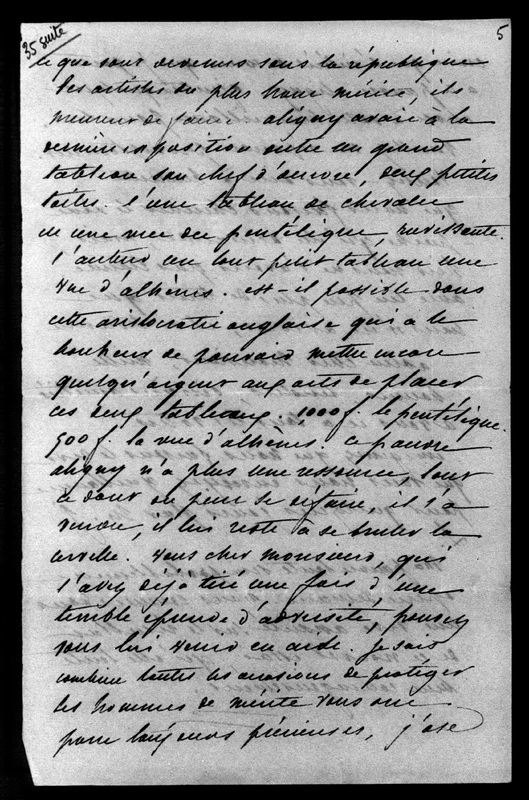 35 suite
5
ce que sont devenus sous la république
les artistes du plus haut mérite, ils
meurent de faim. aligny avait à la
dernière exposition outre un grand
tableau son chef d'œuvre, deux petites
toiles. l'une tableau de chevalet
de une vue du pentélique, ravissante.
l'autre un tout petit tableau une
vue d'athènes. est-il possible dans
cette aristocratie anglaise qui a le
bonheur de pouvoir mettre encore
quelqu'argent aux arts de placer
ces deux tableaux. 1000 f. le pentélique.
500 f. la vue d'athènes. ce pauvre
aligny n'a plus une ressource, tout
ce dont on peut se défaire, il l'a
vendu, il lui reste à se bruler la
cervelle. vous cher monsieur, qui
l'avez déjà tiré une fois d'une
terrible épreuve d'adversité, pouvez
vous lui venir en aide. je sais
combien toutes les occasions de protéger
les hommes de mérite vous ont
paru toujours précieuses, j'ose